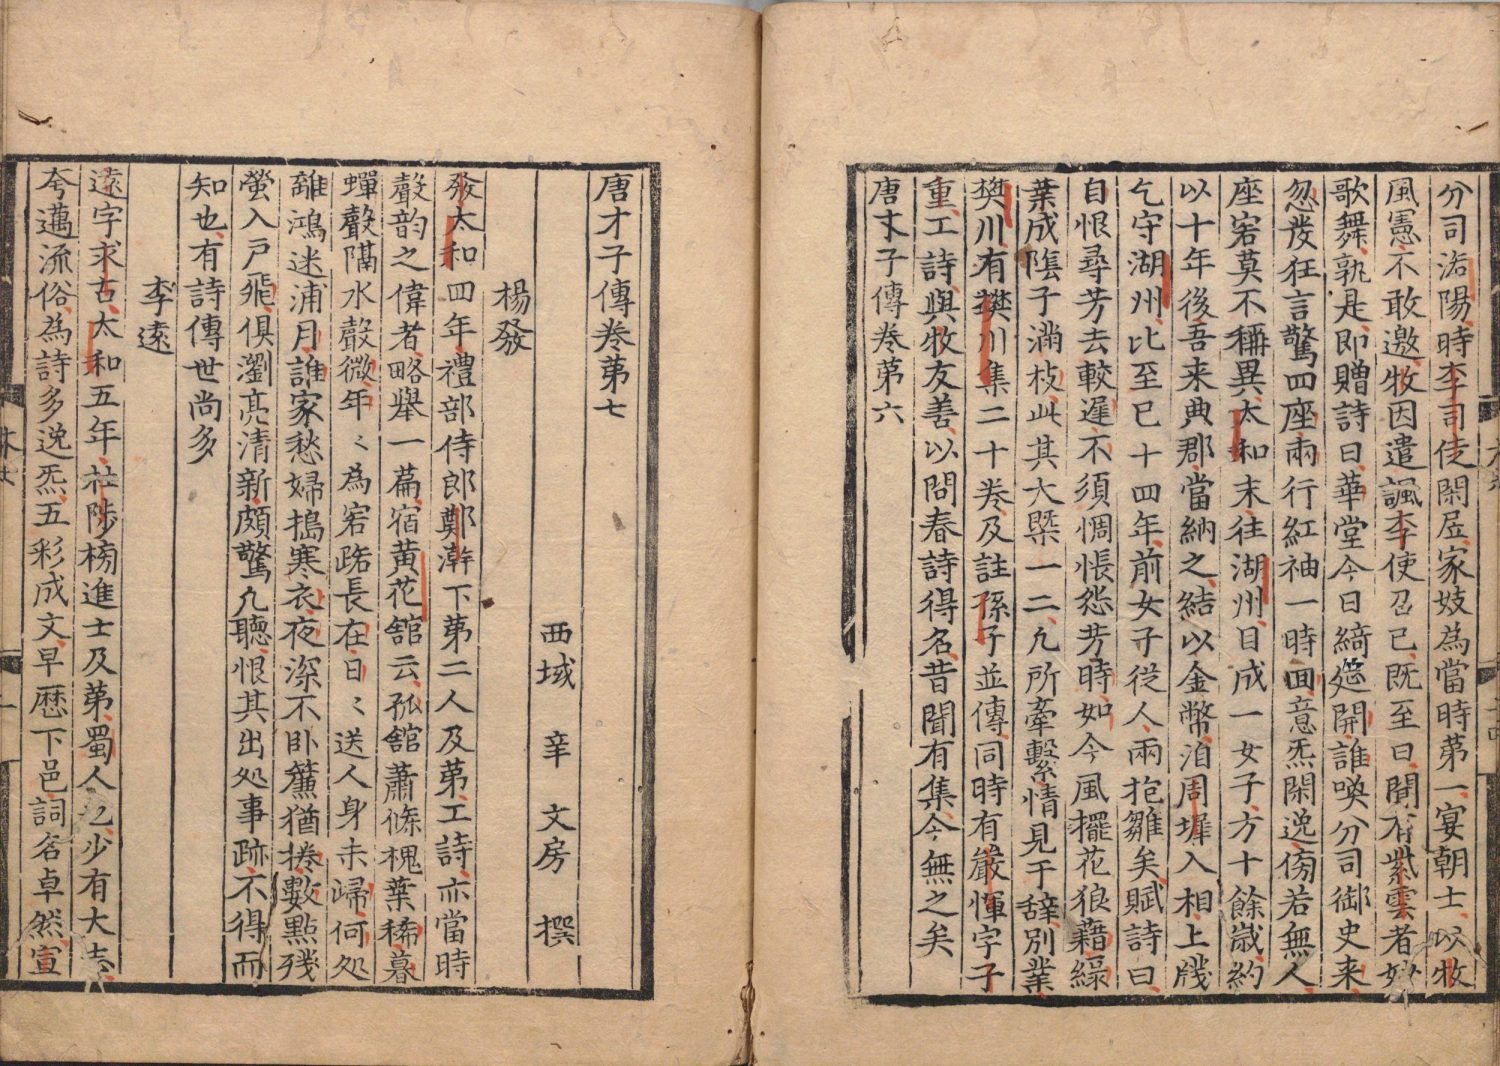 分司洛陽時李司徒閑居家妓為當時第一宴朝士以牧
風憲不敢邀牧因遣諷李使召已既至曰聞有紫雲者妙
歌舞孰是即贈詩曰華堂今日綺筵開誰喚分司御史来
忽發狂言驚四座兩行紅袖一時回意炁閑逸傍若無人
座客莫不稱異太和末往湖州目成一女子方十餘歲約
以十年後吾来典郡當納之結以金幣洎周墀入相上牋
乞守湖州比至已十四年前女子從人兩抱雛矣賦詩曰
自恨尋芳去較遲不須惆悵怨芳時如今風擺花狼藉緑
葉成隂子滿枝此其大槩一二凢所牽繫情見于辞別業
樊川有樊川集二十卷及註孫子並傳同時有嚴惲字子
重工詩與牧友善以問春詩得名昔聞有集今無之矣
唐才子傳卷第六
唐才子傳卷苐七
西域 辛 文房 撰
楊發
發太和四年禮部侍郎鄭澣下苐二人及苐工詩亦當時
聲韵之偉者略舉一篇宿黄花舘云孤舘蕭條槐葉稀暮
蟬聲隔水聲微年〻為客路長在日〻送人身未歸何処
離鴻迷浦月誰家愁婦擣寒衣夜深不卧簾猶捲數點殘
螢入戸飛俱瀏亮清新頗驚凢聽恨其出処事跡不得而
知也有詩傳世尚多
李遠
遠字求古太和五年杜陟榜進士及苐蜀人也少有大志
夸邁流俗為詩多逸炁五彩成文早歴下邑詞名卓然宣